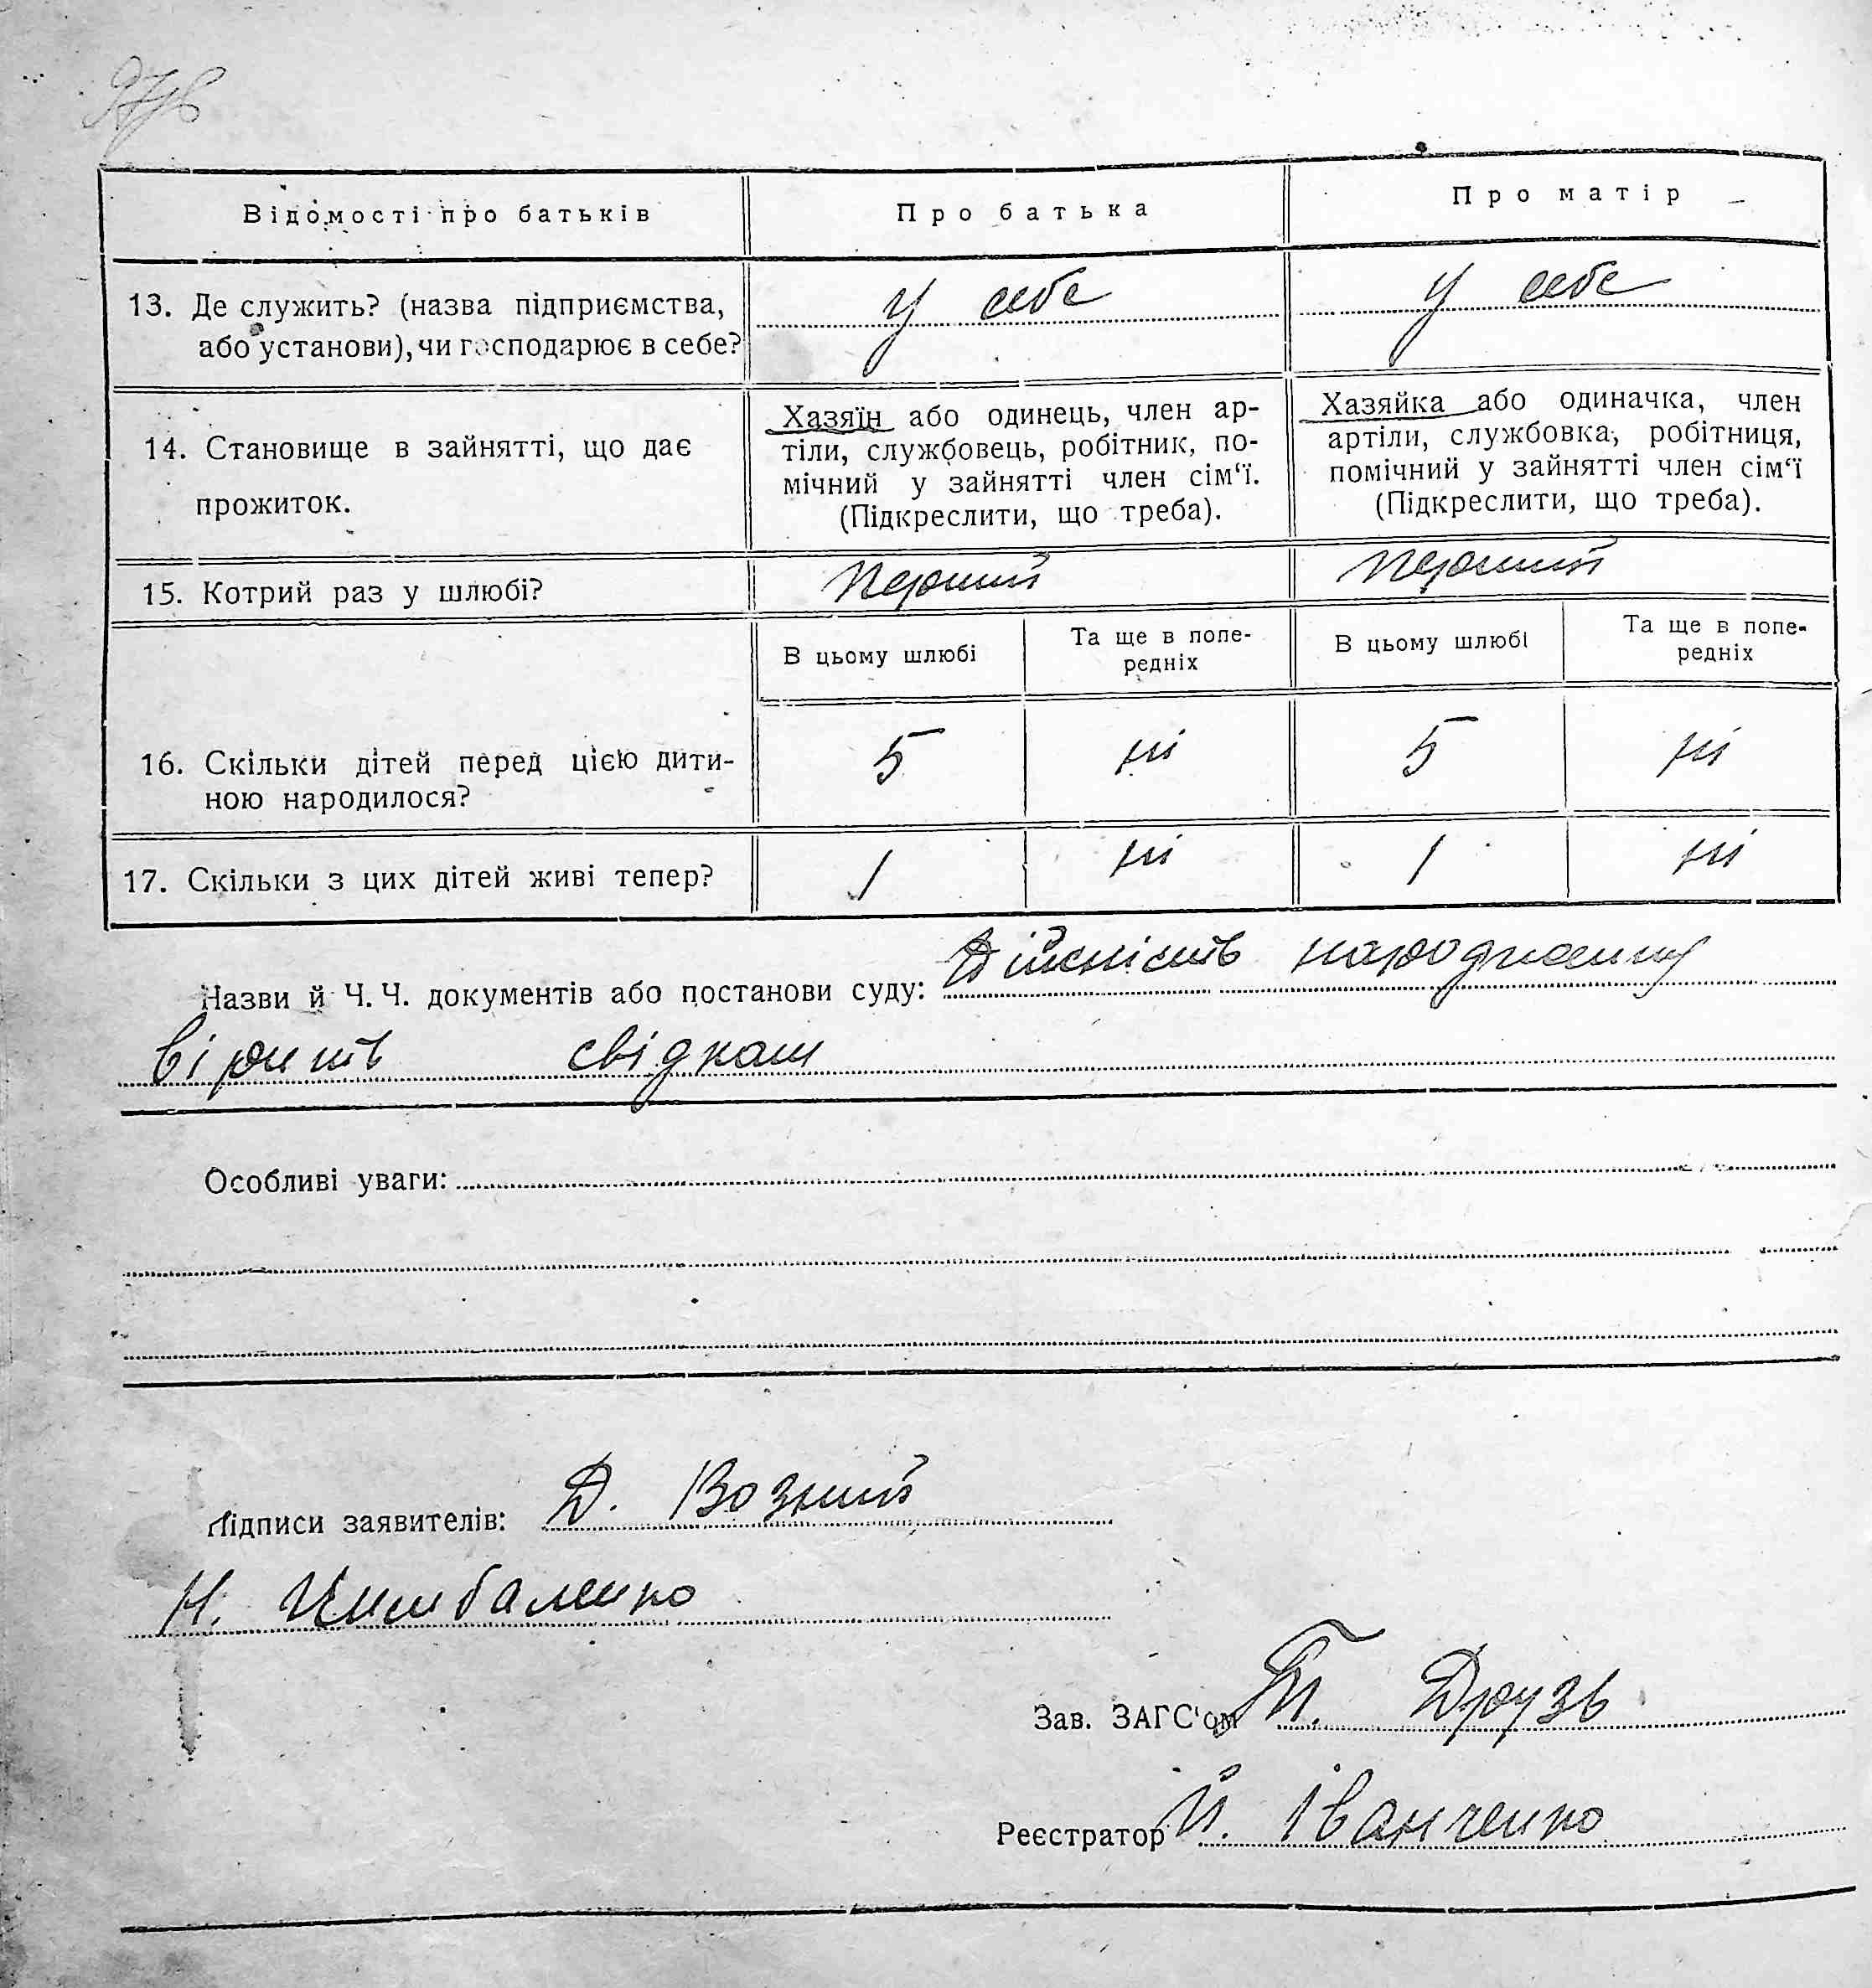 Відомості про батьків
Про батька
Про матір
13. Де служить? (назва підприємства,
або установи), чи господарює в себе?
у себе
у себе
14. Становище в зайнятті, що дає
прожиток.
Хазяїн або одинець, член ар-
тіли, службовець, робітник, по-
мічний у зайнятті член сім‘ї.
(Підкреслити, що треба).
Хазяйка або одиначка, член
артіли, службовка, робітниця,
помічний у зайнятті член сім‘ї
(Підкреслити, що треба).
15. Котрий раз у шлюбі?
Перший
Перший
В цьому шлюбі
Та ще в попе-
редніх
В цьому шлюбі
Та ще в попе-
редніх
16. Скільки дітей перед цією дити-
ною народилося?
5
ні
5
ні
17. Скільки з цих дітей живі тепер?
1
ні
1
ні
Назви й Ч. Ч. документів або постанови суду: Дійсність народженну
вірить свідкам
Особливі уваги:
Підписи заявителів: Д. Возний
Н. Цимбаленко
Зав. ЗАГС‘ом Т. Друзь
Реєстратор Й. Іванченко